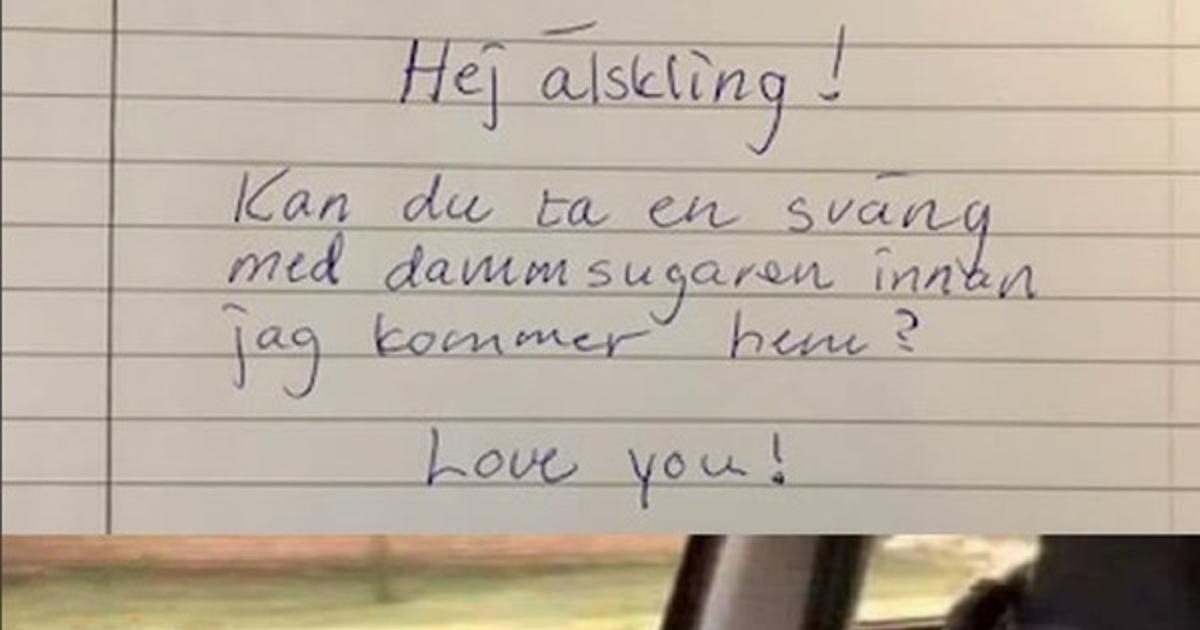 Hej älskling!
Kan du ta en sväng
med dammsugaren innan
jag kommer hem?
Love you!